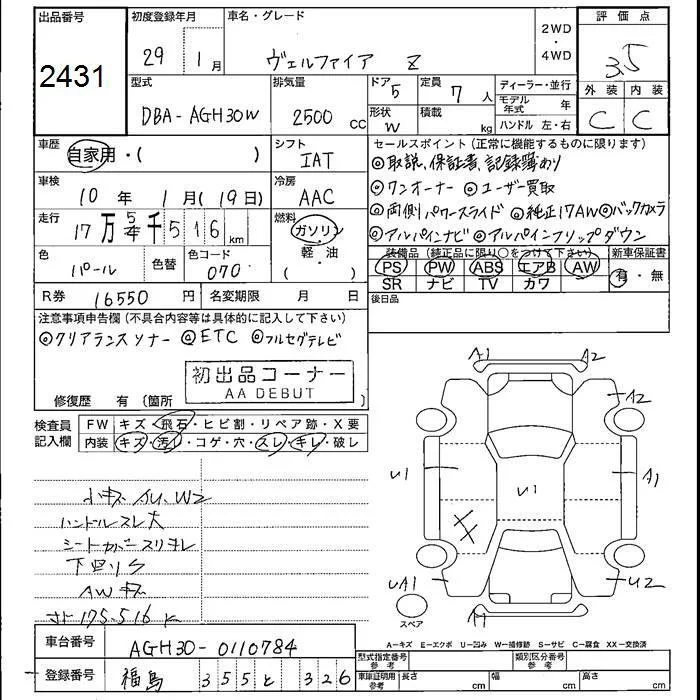 出品番号 初度登録年月 車名・グレード 2WD・4WD 評価点
2431 29 1月 ヴェルファイア Z 3.5
型式 排気量 ドア 5 定員 7人 ディーラー・並行 外装 内装
DBA-AGH30W 2500cc 形状 W 積載 kg モデル年式 年 C C
ハンドル 左・右
車歴 自家用・( ) シフト IAT セールスポイント (正常に機能するものに限ります)
◎取説、保証書、記録簿あり
車検 10年 1月(19日) 冷房 AAC ◎ワンオーナー ◎ユーザー買取
◎両側パワースライド ◎純正17AW ◎バックカメラ
走行 17万5千516km 燃料 ガソリン 軽油 ( ) ◎アルパインナビ ◎アルパインフリップダウン
色 パール 色替 色コード 070 装備品 (純正品に限り○をつけて下さい) 新車保証書
PS PW ABS エアB AW 有・無
SR ナビ TV カワ
R券 16550円 名変期限 月 日 後日品
注意事項申告欄 (不具合内容等は具体的に記入して下さい)
◎クリアランスソナー ◎ETC ◎フルセグテレビ
初出品コーナー
AA DEBUT
修復歴 有 (箇所
検査員記入欄 FW キズ・飛石・ヒビ割・リペア跡・X要
内装 キズ・汚れ・コゲ・穴・スレ・キレ・破レ
A1 A2
A2
U1 A1
U1
小キズ W2
ハンドルスレ大
シートカバースリキレ
下回りS
AWキズ
175.516K
UA1 U2
スペア
A1
A-キズ E-エクボ U-凹み W-補修跡 S-サビ C-腐食 XX-交換済
車台番号 AGH30-0110784 型式指定番号 参考 類別区分番号 参考
登録番号 福島 355 と 326 車庫証明用 参考 長さ cm 幅 cm 高さ cm